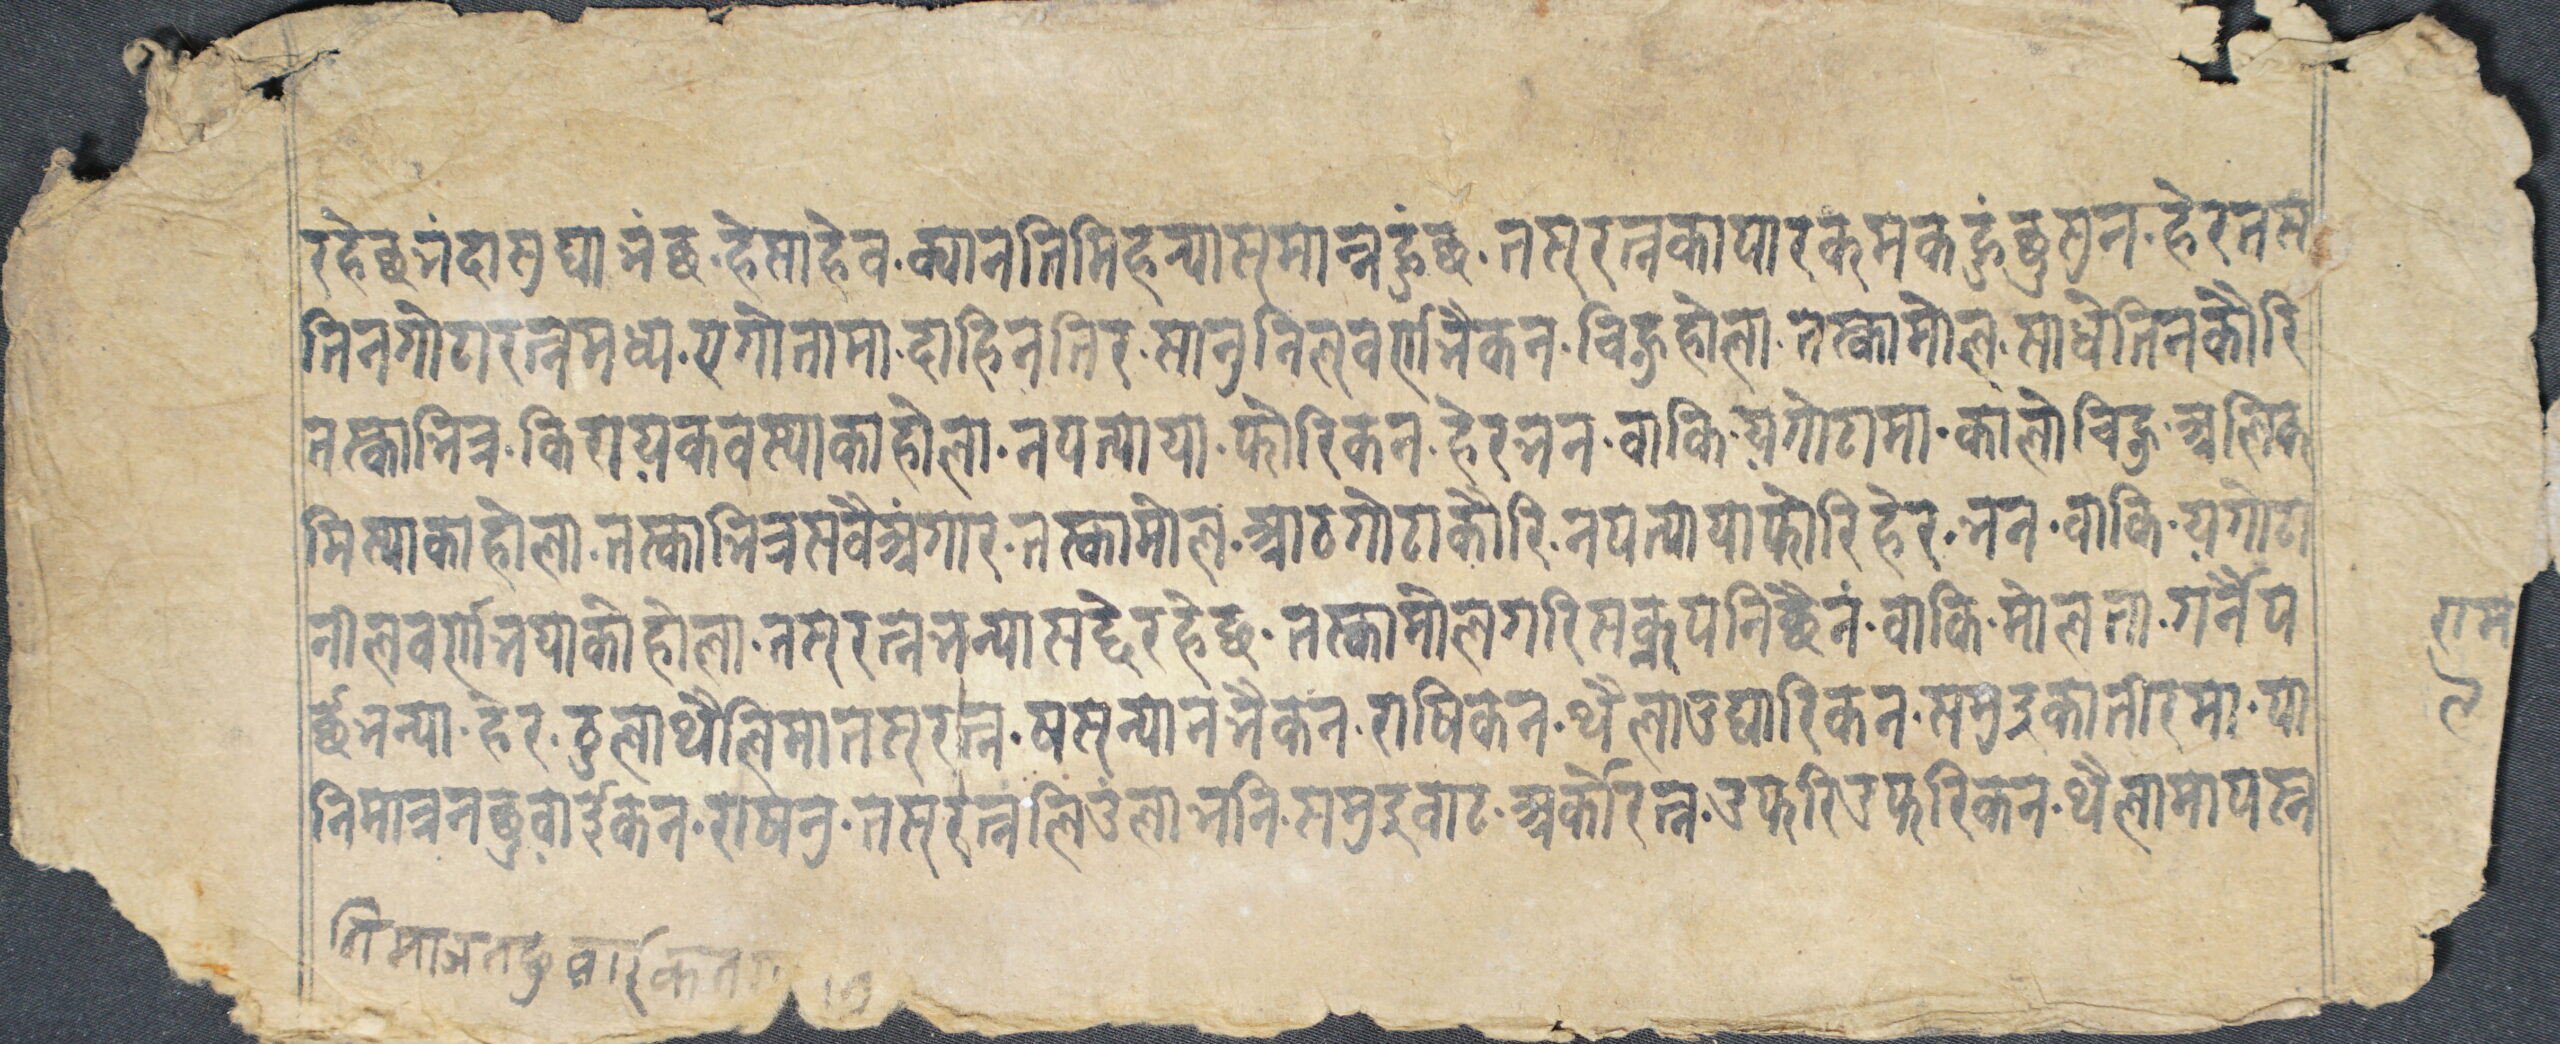 रहेछभंदासुद्याभंछ·हेसाहेव·क्यानतिमिहन्यासमान्नहुंछ·तस्रत्नकापारकमकहुंछुसुन·हेरतस
तिनगोटारत्नमध्य·एगोतामा·दाहिनतिर·सानुनिलवर्णभैकन·चिह्नुहोला·तस्कामोल·साधेतिनकौरि
तस्काभित्र·किरायकवस्याकाहोला·नपत्यायाफोरिकन·हेरभन·वाकि·यगोटामा·कालोचिह्नु·अलिक
मिस्याकाहोला·तस्काभित्रसवैअंगार·तस्कामोल·आठगोटाकौरि·नपत्यायाफोरिहेर·भन·वाकि·यगोटा
नीलवर्णभयाकोहोला·तसरत्नभन्यासद्देरहेछ·तस्कामोलगरिसक्नुपनिछैनं·वाकि·मोलता·गर्नैप
र्छभन्या·हेर·ठुलाथैलिमातस्रत्न·षस्न्यानभैकन·राषिकन·थैलाउघारिकन·समुद्रकातीरमा·पा
निमात्रनछुवाईकन·राषनु·तस्रत्नलिउंला·भनि·समुद्रवाट·अर्कोरत्न·उफ्रिउफ्रिकन·थैलामापस्न
राम